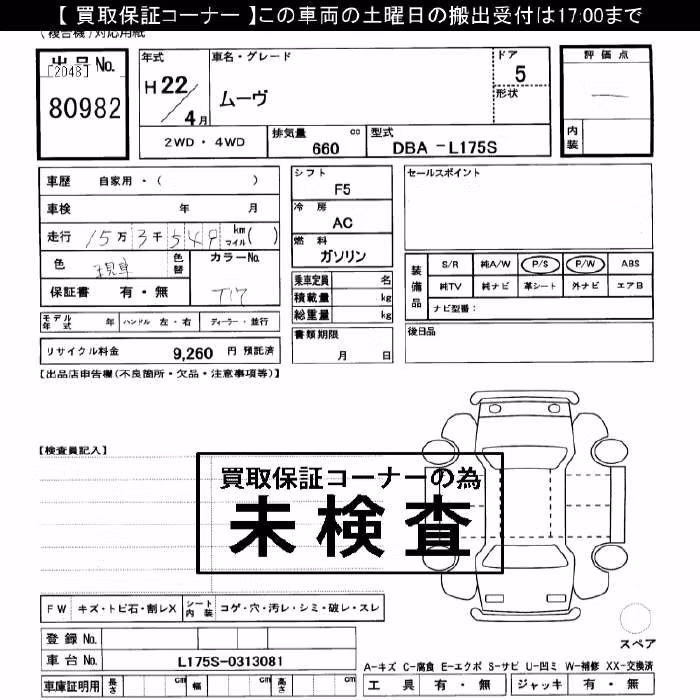 【 買取保証コーナー 】この車両の土曜日の搬出受付は17:00まで
(複合機)対応用紙
出品No.
[2048]
80982
年式
H 22/4月
車名・グレード
ムーヴ
ドア
5
形状
評価点
内装
2WD・4WD
排気量
660 cc
型式
DBA -L175S
車歴 自家用・( )
車検 年 月
走行 15万3千549 km マイル( )
色
色替
カラーNo.
T17
保証書 有・無
モデル年式 年 ハンドル 左・右 ディーラー・並行
リサイクル料金 9,260 円 預託済
シフト
F5
冷房
AC
燃料
ガソリン
乗車定員 名
積載量 kg
総重量 kg
書類期限
月 日
セールスポイント
装備品
S/R 純A/W P/S P/W ABS
純TV 純ナビ 革シート 外ナビ エアB
ナビ型番:
後日品
【出品店申告欄(不良箇所・欠品・注意事項等)】
【検査員記入】
買取保証コーナーの為
未検査
FW キズ・トビ石・割レX シート内装 コゲ・穴・汚レ・シミ・破レ・スレ
登録No.
車台No. L175S-0313081
車庫証明用 長さ cm 幅 cm 高さ cm
スペア
A-キズ C-腐食 E-エクボ S-サビ U-凹ミ W-補修 XX-交換済
工具 有・無 ジャッキ 有・無